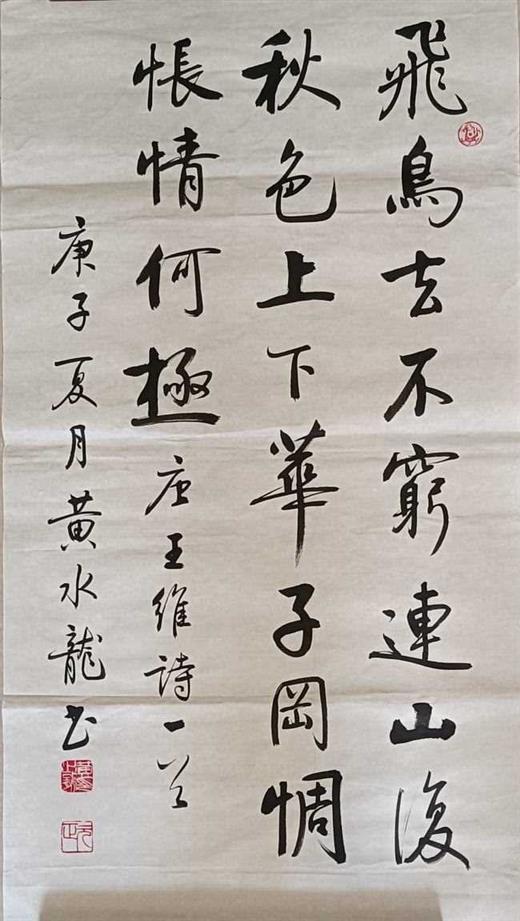 飛鳥去不窮連山復
秋色上下華子岡惆
悵情何極唐王維詩一首
庚子夏月黄水龍书